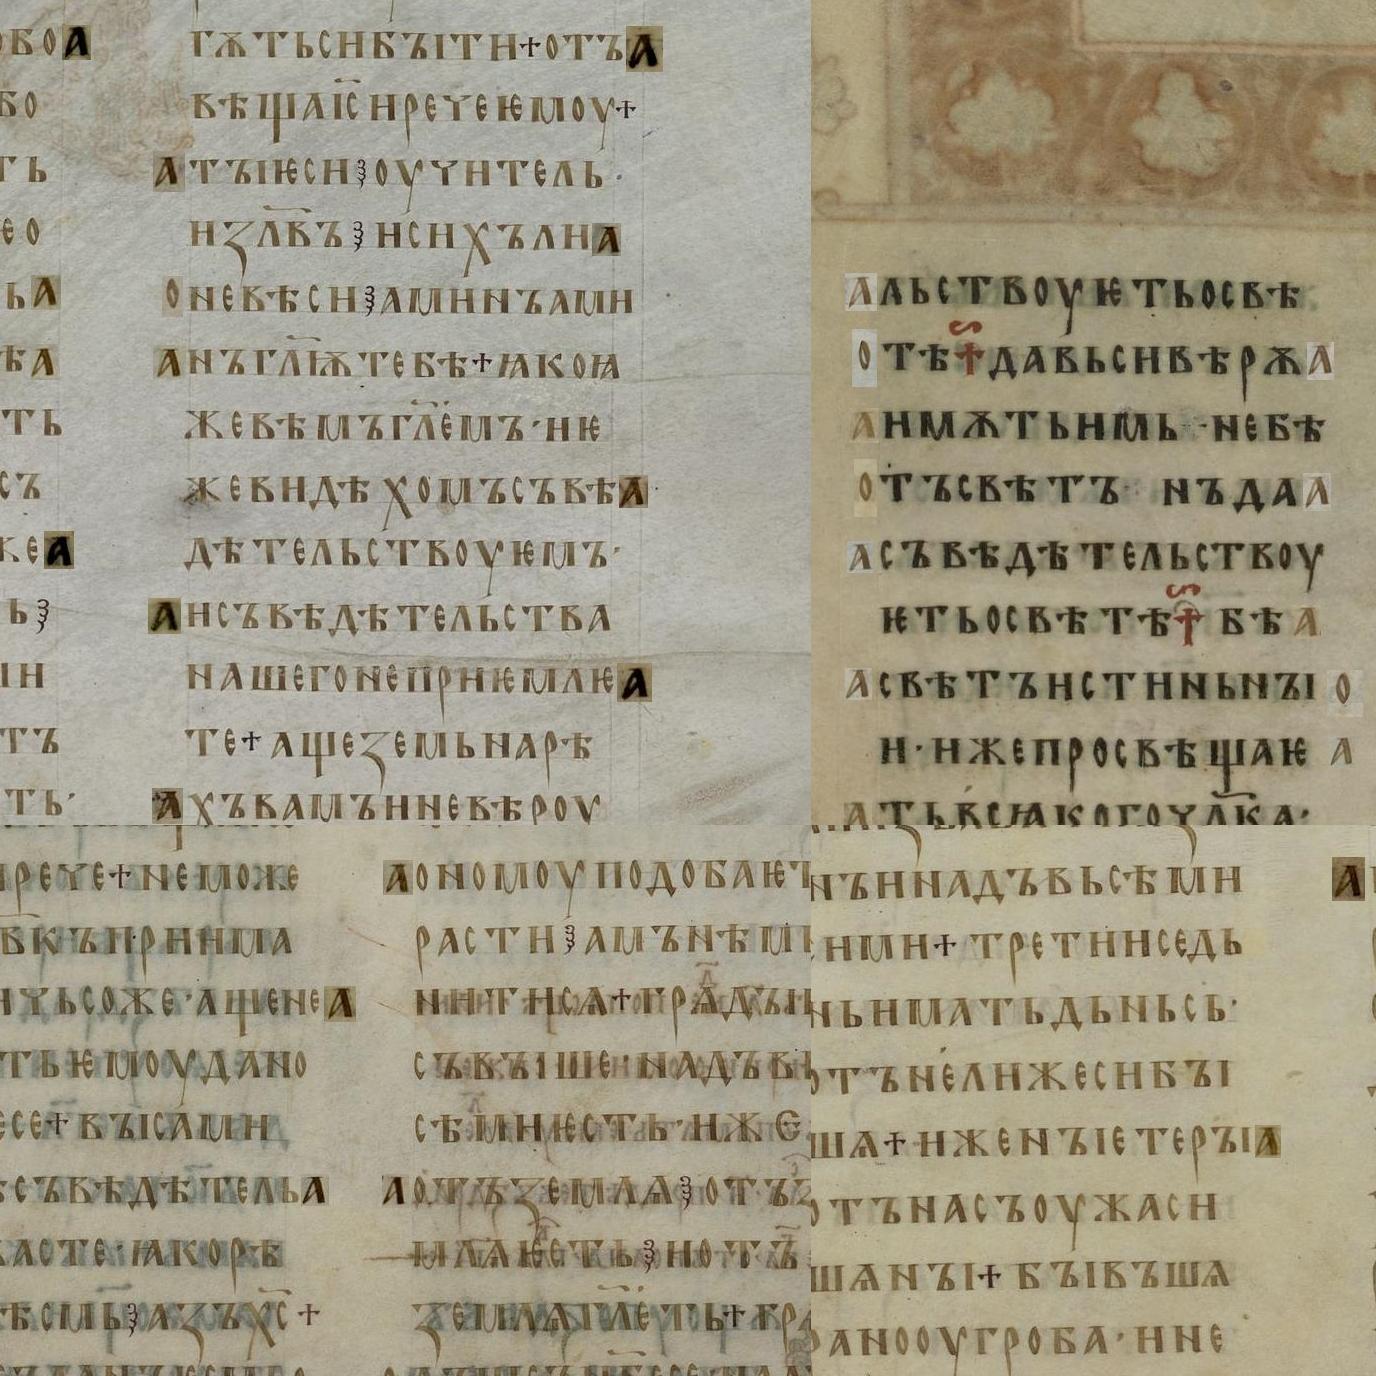 ОБОА
БО
ТЬ
ЕО
ЬА
ѢА
ТЬ
СЪ
ЖЕА
Ь
ІН
ТЪ
ТЬ·
ГѪТЬСНБЪІТН+ОТЪА
ВѢЩАІС҃НРЕЧЕѤМОУ+
АТЪІѤСН꙾ОУЧНТЕЛЬ·
НЗЛ҃ВЪ꙾НСНХЪЛНА
ОНЕВѢСН꙾АМННЪАМН
АНЪГЛ҃ѬТЕБѢ+ꙖКОꙖ
ЖЕВѢМЪГЛ҃ЕМЪ·НѤ
ЖЕВНДѢХОМЪСЪВѢА·
ДѢТЕЛЬСТВОУѤМЪ·
АНСЪВѢДѢТЕЛЬСТВА
НАШЕГОНЕПРНѤМЛѤА
ТЕ+АЩЕЗЕМЬНАРѢ
АХЪВАМЪННЕВѢРОУ
АЛЬСТВОУѤТЬОСВѢ
ОТѢ+ДАВЬСНВѢРѪА
АНМѪТЬНМЬ·НЕБѢ
ОТЪСВѢТЪ НЪДАА
АСЪВѢДѢТЕЛЬСТВОУ
ѤТЬОСВѢТѢ+БѢА
АСВѢТЪНСТННЬНЪІО
Н·НЖЕПРОСВѢЩАѤА
АТЬВСꙖКОГОЧЛ҃КА·
ПРЕЧЕ+НЕМОЖЕ
ВКЪПРННМА
НЧЬСОЖЕ·АЩЕНЕА
ТЬѤМОУДАНО
ЕСЕ+ВЪІСАМН
СЪВѢДѢТЕЛЬА
АСТЕ·ꙖКОРѢ
ѢСМЬ꙾АЗЪХ҃С+
АОНОМОУПОДОБАѤТ
РАСТН꙾АМЪНѢМ
ННТНСѦ+ГРѦДЪІ
СЪВЪІШЕ·НАДЪВ
СѢМНѤСТЬ·НЖЕ
АОТЪЗЕМЛѦ꙾ОТЪЗ
МЛѦѤТЬ꙾НОТЪ
ЗЕМЛѦГЛ҃ЕТЬ+ГР
НЪННАДЪВЬСѢМН
НМН+ТРЕТННСЕДЬ
НЬНМАТЬДЬНЬСЬ·
ОТЪНЕЛНЖЕСНБЪІ
ШѦ+НЖЕНЪІЕТЕРЪІА
ОТЪНАСЪОУЖАСН
ШѦНЪІ+БЪІВЪШѦ
РАНООУГРОБА·ННЕ
А